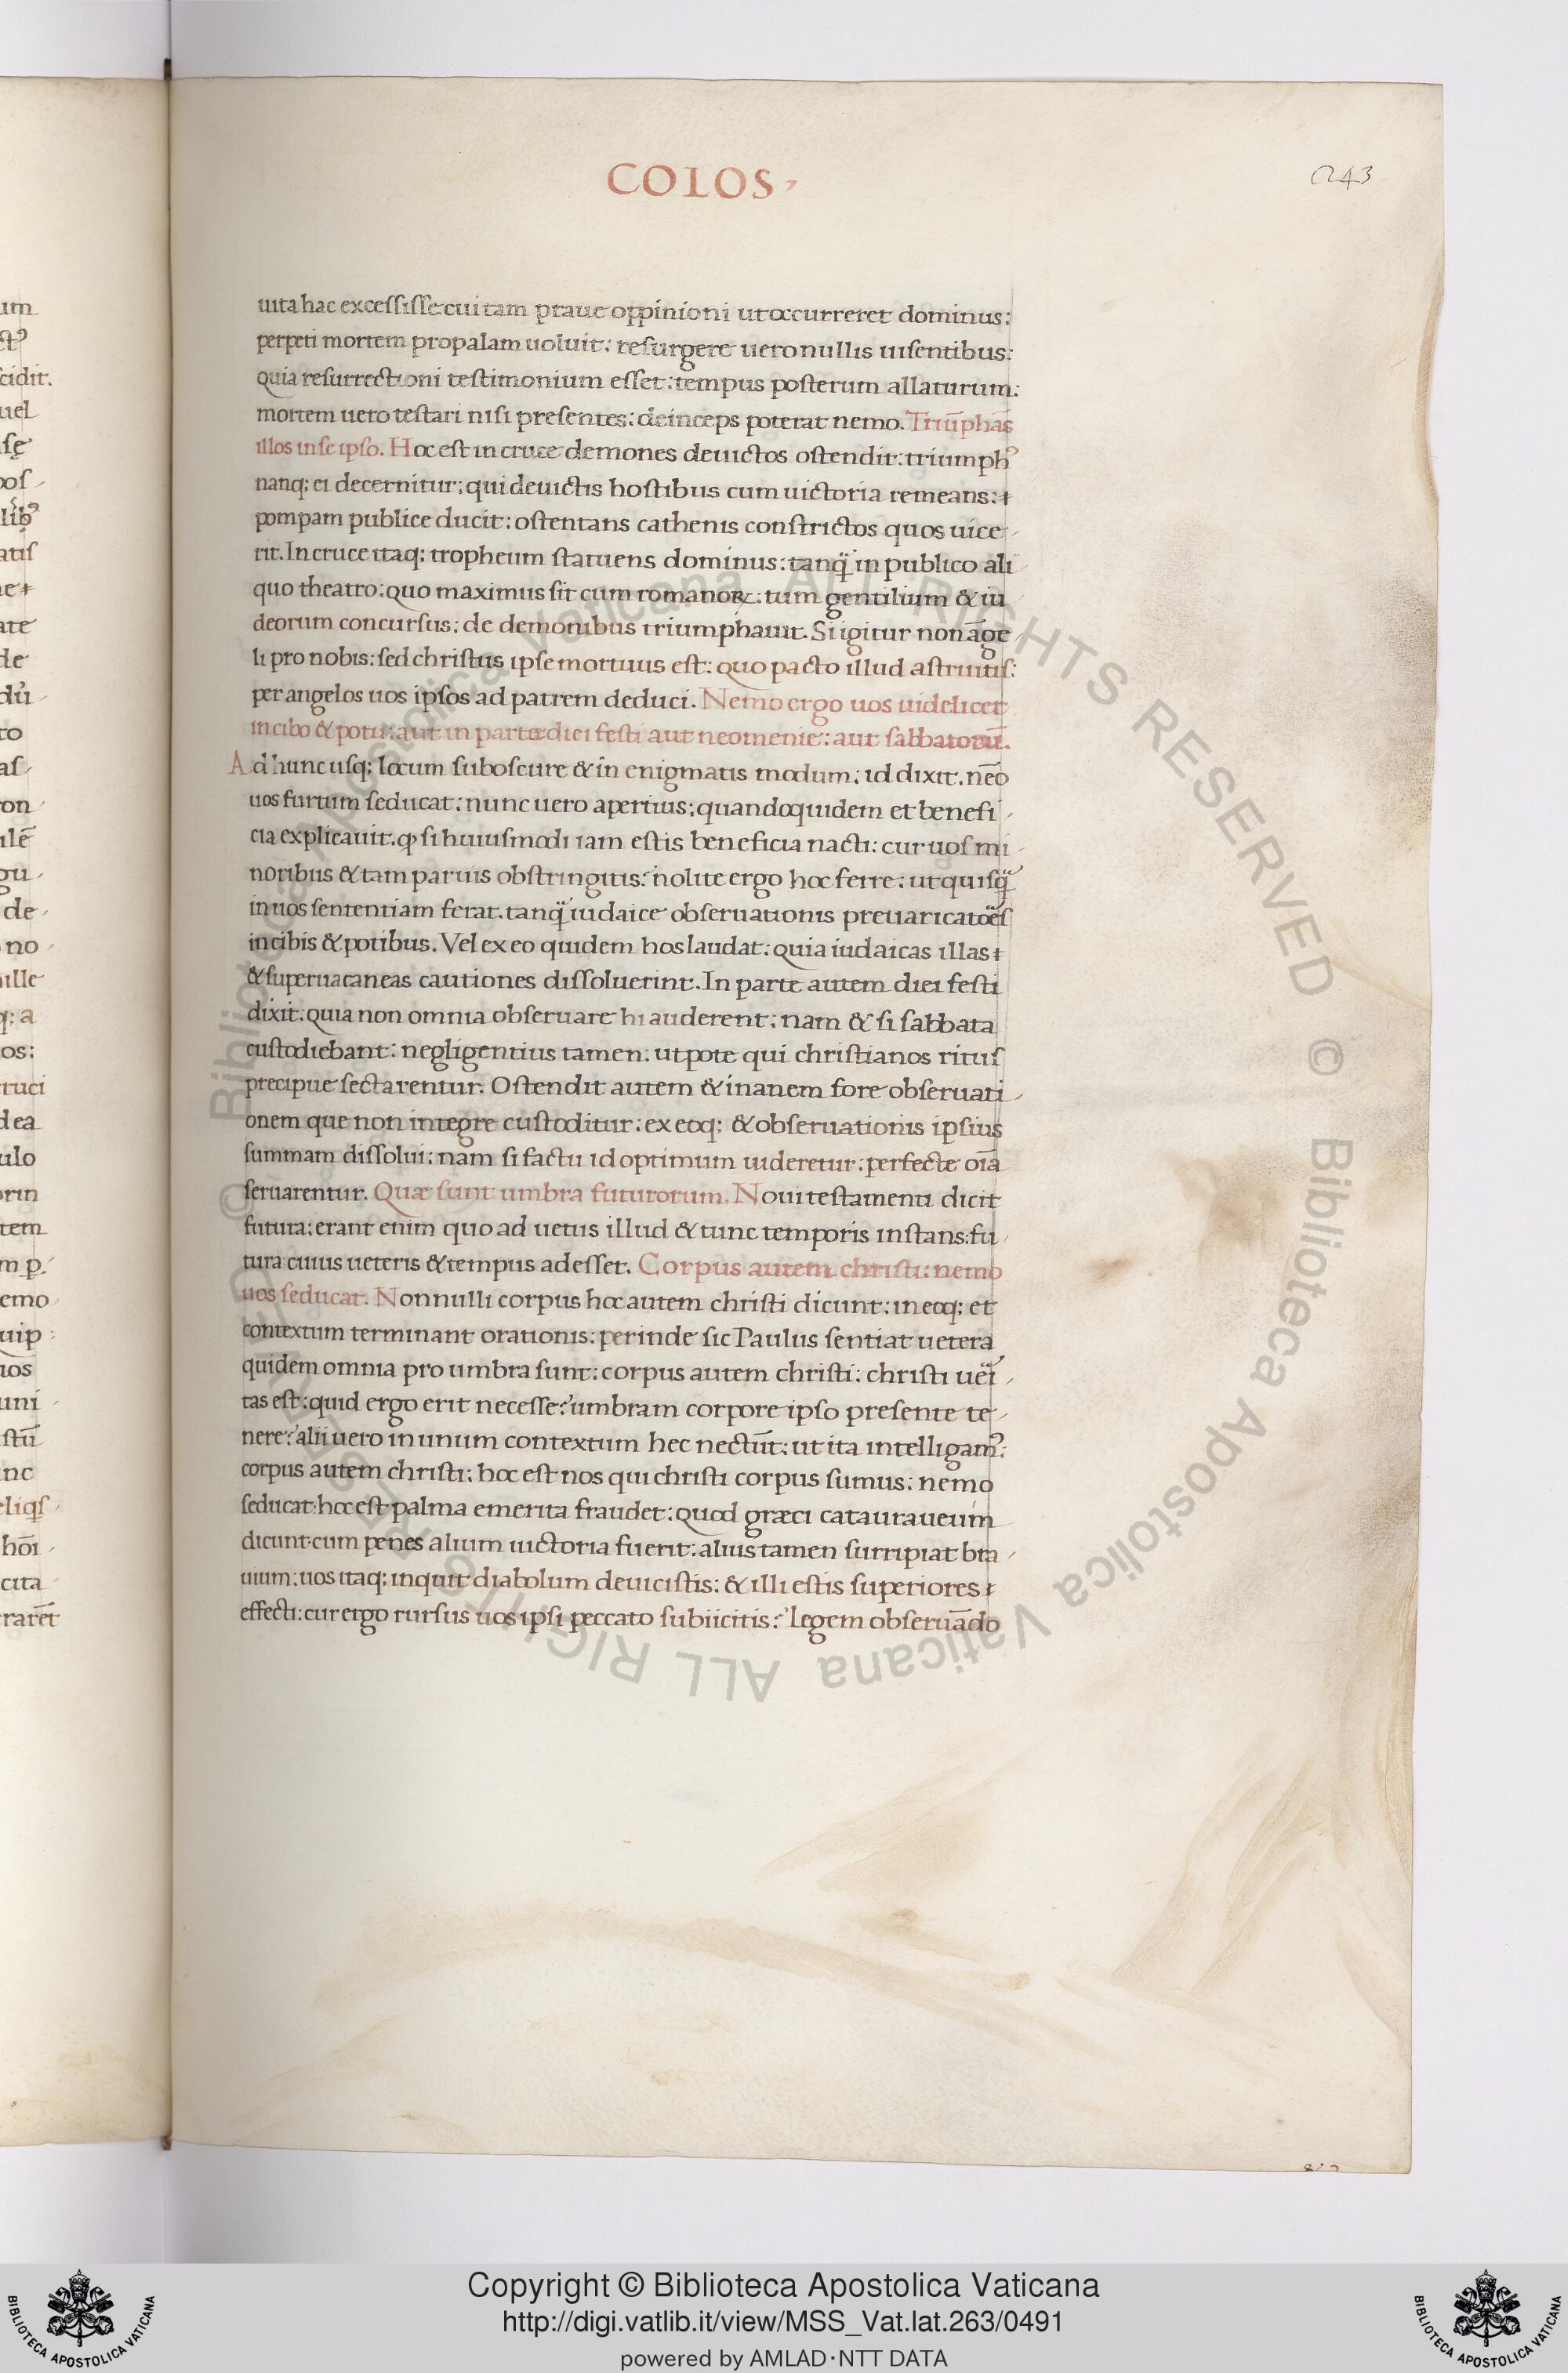 COLOS
243
uita hac excessisse: cui tam praue oppinioni ut occurreret dominus:
perpeti mortem propalam uoluit: resurgere uero nullis uisentibus:
quia resurrectioni testimonium esset: tempus posterum allaturum:
mortem uero testari nisi presentes: deinceps poterat nemo. Triũphãs
illos in se ipso. Hoc est in cruce demones deuictos ostendit: triumphꝰ
nanq; ei decernitur: qui deuictis hostibus cum uictoria remeans:
pompam publice ducit: ostentans cathenis constrictos quos uice
rit. In cruce itaq; tropheum statuens dominus: tanq̃ in publico ali
quo theatro: quo maximus sit cum romanoꝝ: tum gentilium & iu
deorum concursus: de demonibus triumphauit. Si igitur non ãge
li pro nobis: sed christus ipse mortuus est: quo pacto illud astruitis:
per angelos uos ipsos ad patrem deduci. Nemo ergo uos uidelicet
in cibo & potu: aut in parte diei festi aut neomenie: aut sabbatorũ.
Ad hunc usq; locum suboscure & in enigmatis modum: id dixit. neõ
uos furtim seducat: nunc uero apertius: quandoquidem et benefi
cia explicauit. ꝙ si huiusmodi iam estis beneficia nacti: cur uos mi
noribus & tam paruis obstringitis? nolite ergo hoc ferre: ut quisq̃
in uos sententiam ferat. tanq̃ iudaice obseruationis preuaricatões
in cibis & potibus. Vel ex eo quidem hos laudat: quia iudaicas illas
& superuacaneas cautiones dissoluerint. In parte autem diei festi
dixit. quia non omnia obseruare hi auderent: nam & si sabbata
custodiebant: negligentius tamen: utpote qui christianos ritus
precipue sectarentur. Ostendit autem & inanem fore obseruati
onem que non integre custoditur: ex eoq; & obseruationis ipsius
summam dissolui: nam si factu id optimum uideretur: perfecte oĩa
seruarentur. Quæ sunt umbra futurorum. Noui testamenti dicit
futura: erant enim quo ad uetus illud & tunc temporis instans: fu
tura cuius ueteris & tempus adesset. Corpus autem christi: nemo
uos seducat. Nonnulli corpus hoc autem christi dicunt: in eoq; et
contextum terminant orationis: perinde sic Paulus sentiat uetera
quidem omnia pro umbra sunt: corpus autem christi: christi uẽi
tas est: quid ergo erit necesse? umbram corpore ipso presente te
nere? alii uero in unum contextum hec nectũt: ut ita intelligamꝰ:
corpus autem christi: hoc est nos qui christi corpus sumus: nemo
seducat: hoc est palma emerita fraudet: quod græci catauraueum
dicunt: cum penes alium uictoria fuerit: alius tamen surripiat bra
uium: uos itaq; inquit diabolum deuicistis: & illi estis superiores
effecti: cur ergo rursus uos ipsi peccato subiicitis? Legem obseruãdo
© Biblioteca Apostolica Vaticana ALL RIGHTS RESERVED © Biblioteca Apostolica Vaticana ALL RIGHTS RESERVED
Copyright © Biblioteca Apostolica Vaticana
http://digi.vatlib.it/view/MSS_Vat.lat.263/0491
powered by AMLAD·NTT DATA
BIBLIOTECA APOSTOLICA VATICANA
BIBLIOTECA APOSTOLICA VATICANA